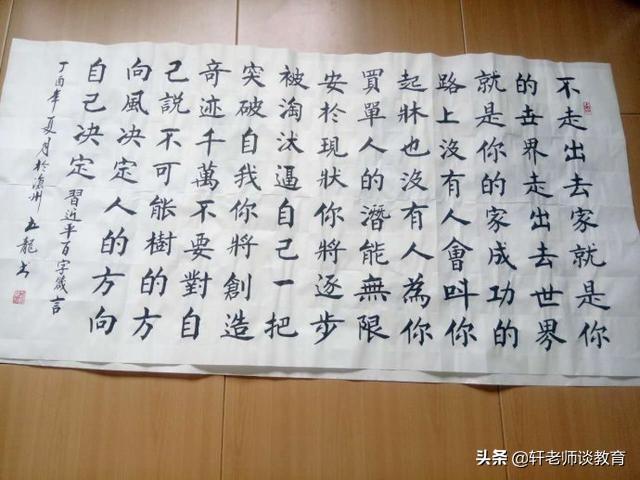 不走出去家就是你
的世界走出去世界
就是你的家成功的
路上沒有人會叫你
起牀也沒有人為你
買單人的潛能無限
安於現狀你將逐步
被淘汰逼自己一把
突破自我你將創造
奇迹千萬不要對自
己說不可能樹的方
向風决定人的方向
自己决定 習近平百字箴言
丁酉年夏月於 州 龍书
头条 @轩老师谈教育